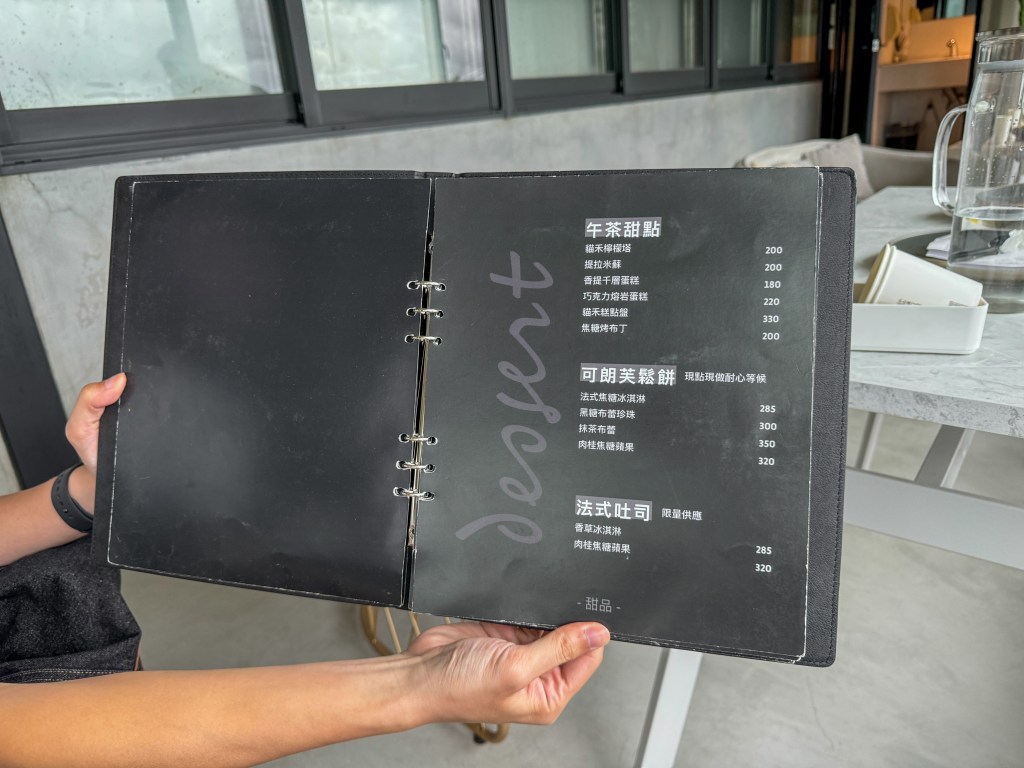 dessert
午茶甜點
貓禾檸檬塔 200
提拉米蘇 200
香提千層蛋糕 180
巧克力熔岩蛋糕 220
貓禾糕點盤 330
焦糖烤布丁 200
可朗芙鬆餅 現點現做耐心等候
法式焦糖冰淇淋 285
黑糖布蕾珍珠 300
抹茶布蕾 350
肉桂焦糖蘋果 320
法式吐司 限量供應
香草冰淇淋 285
肉桂焦糖蘋果 320
- 甜品 -